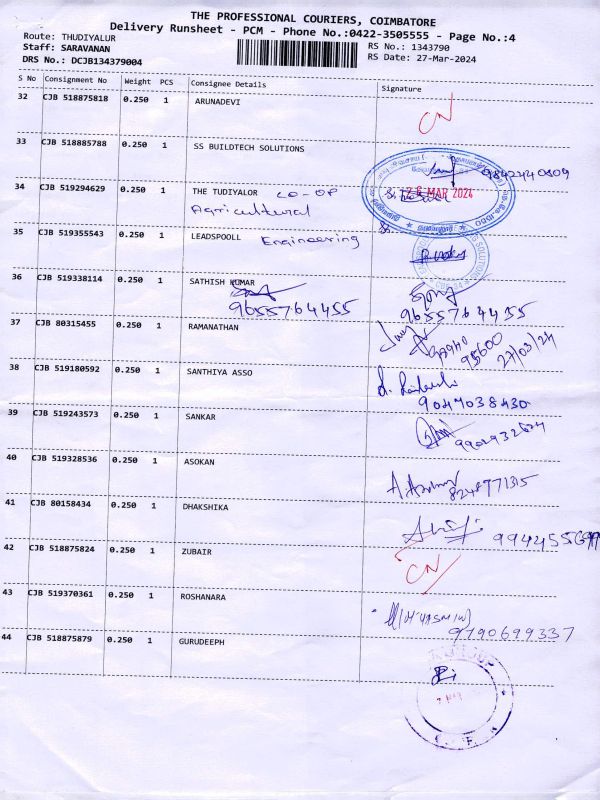 THE PROFESSIONAL COURIERS, COIMBATORE
Delivery Runsheet - PCM - Phone No.:0422-3505555 - Page No.:4
Route: THUDIYALUR
Staff: SARAVANAN
DRS No.: DCJB134379004
RS No.: 1343790
RS Date: 27-Mar-2024
S No Consignment No Weight PCS Consignee Details Signature
32 CJB 518875818 0.250 1 ARUNADEVI CN
33 CJB 518885788 0.250 1 SS BUILDTECH SOLUTIONS
34 CJB 519294629 0.250 1 THE TUDIYALOR CO-OP
Agricultural
MAR 2024
35 CJB 519355543 0.250 1 LEADSPOOLL Engineering
36 CJB 519338114 0.250 1 SATHISH KUMAR
9655764455 9655764455
37 CJB 80315455 0.250 1 RAMANATHAN
95600
27/03/24
38 CJB 519180592 0.250 1 SANTHIYA ASSO
9047038430
39 CJB 519243573 0.250 1 SANKAR
40 CJB 519328536 0.250 1 ASOKAN
41 CJB 80158434 0.250 1 DHAKSHIKA
42 CJB 518875824 0.250 1 ZUBAIR CN
43 CJB 519370361 0.250 1 ROSHANARA
9790699337
44 CJB 518875879 0.250 1 GURUDEEPH